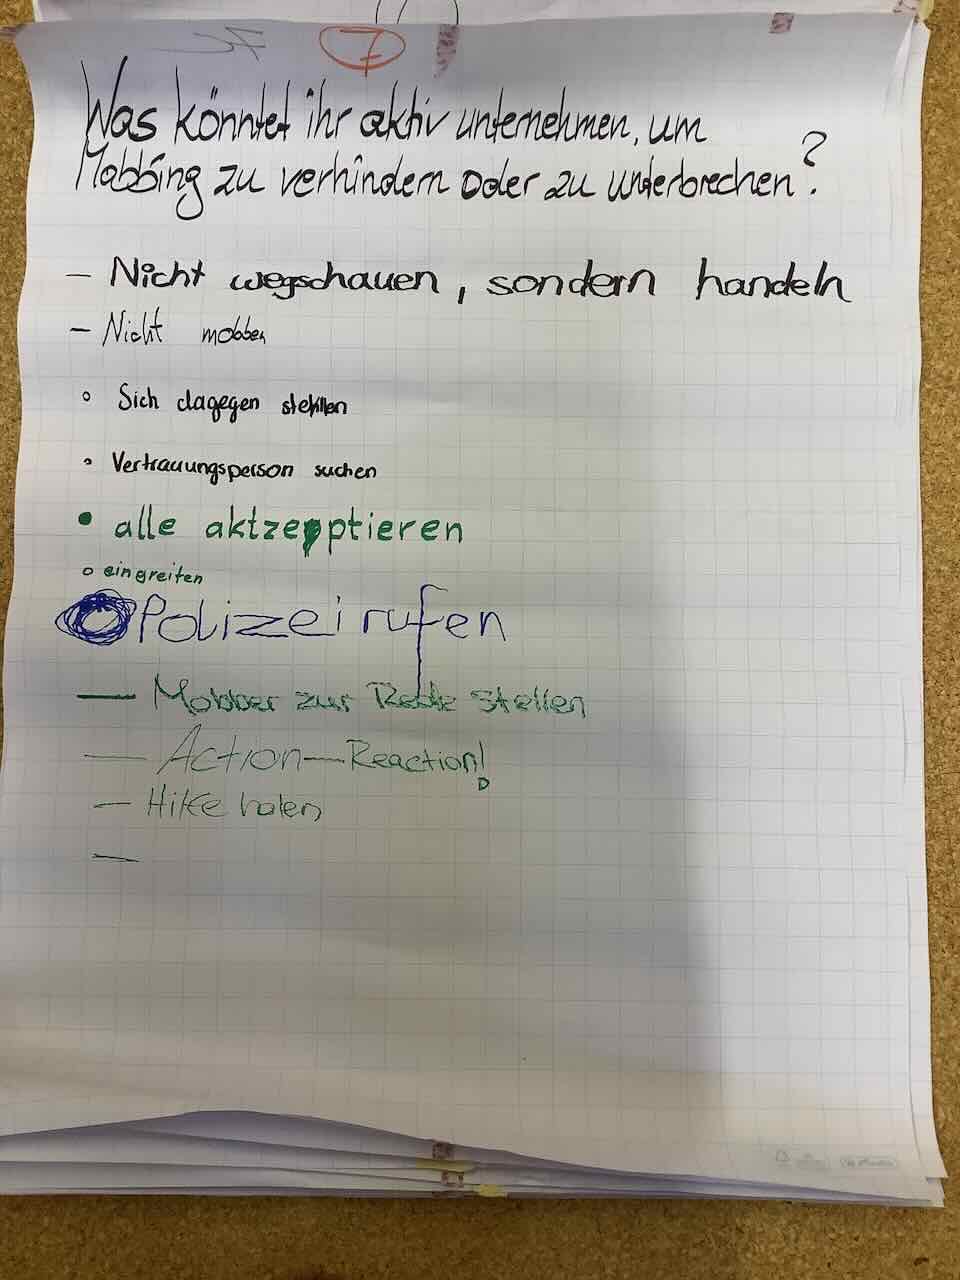 7
Was könntet ihr aktiv unternehmen, um
Mobbing zu verhindern oder zu unterbrechen?
- Nicht wegschauen, sondern handeln
- Nicht mobben
○ Sich dagegen stellen
• Vertrauungsperson suchen
• alle aktzeptieren
○ eingreifen
Polizei rufen
- Mobber zur Rede stellen
- Action - Reaction!
- Hilfe holen
-